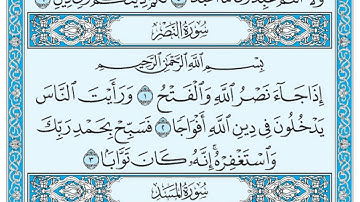 وَلَا أَنتُمْ عَٰبِدُونَ مَا أَعْبُدُ ۝ لَكُمْ دِينُكُمْ وَلِيَ دِينِ ۝
سُورَةُ النَّصْرِ
بِسْمِ ٱللَّهِ ٱلرَّحْمَٰنِ ٱلرَّحِيمِ
إِذَا جَآءَ نَصْرُ ٱللَّهِ وَٱلْفَتْحُ ١ وَرَأَيْتَ ٱلنَّاسَ
يَدْخُلُونَ فِى دِينِ ٱللَّهِ أَفْوَاجًا ٢ فَسَبِّحْ بِحَمْدِ رَبِّكَ
وَٱسْتَغْفِرْهُ إِنَّهُۥ كَانَ تَوَّابًۢا ٣
سُورَةُ المَسَدِ